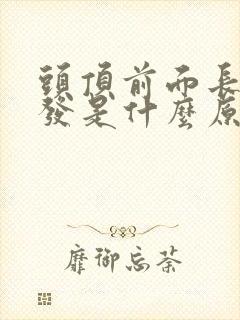 頭頂前面長
發是什麼原
靡御忘荼